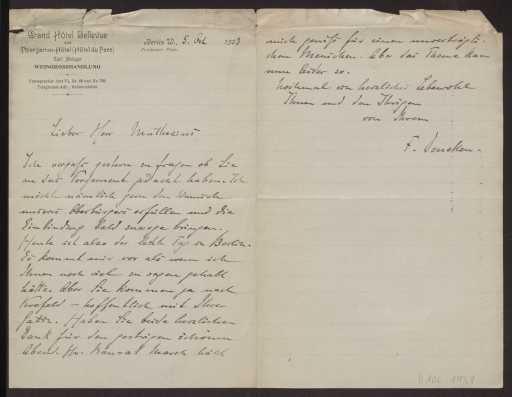 Grand Hôtel Bellevue
und
Thiergarten-Hôtel (Hôtel du Parc)
Carl Metzger
WEINGROSSHANDLUNG
Berlin W., 5. Okt 1903
Potsdamer Platz.
Lieber Herr Muthesius
Ich vergaß gestern zu fragen ob Sie
an das gedacht haben. Ich
möchte nämlich gern den Wunsch
unseres Oberbürgers erfüllen und die
Einbindung bald bringen.
Heute ist also der letzte Tag in Berlin.
Es kommt mir vor als wenn ich
Ihnen noch viel zu sagen gehabt
hätte. Aber Sie kommen ja nach
Krefeld – hoffentlich mit Ihrer
Gattin. Haben Sie beide herzlichen
Dank für den gestrigen schönen
Abend. Hr. March hält
mich gewiß für einen unverträgli-
chen Menschen. Aber das Thema kam
nun leider so.
Nochmal ein herzliches Lebewohl
Ihnen und den Ihrigen
von Ihrem
F. Deneken.